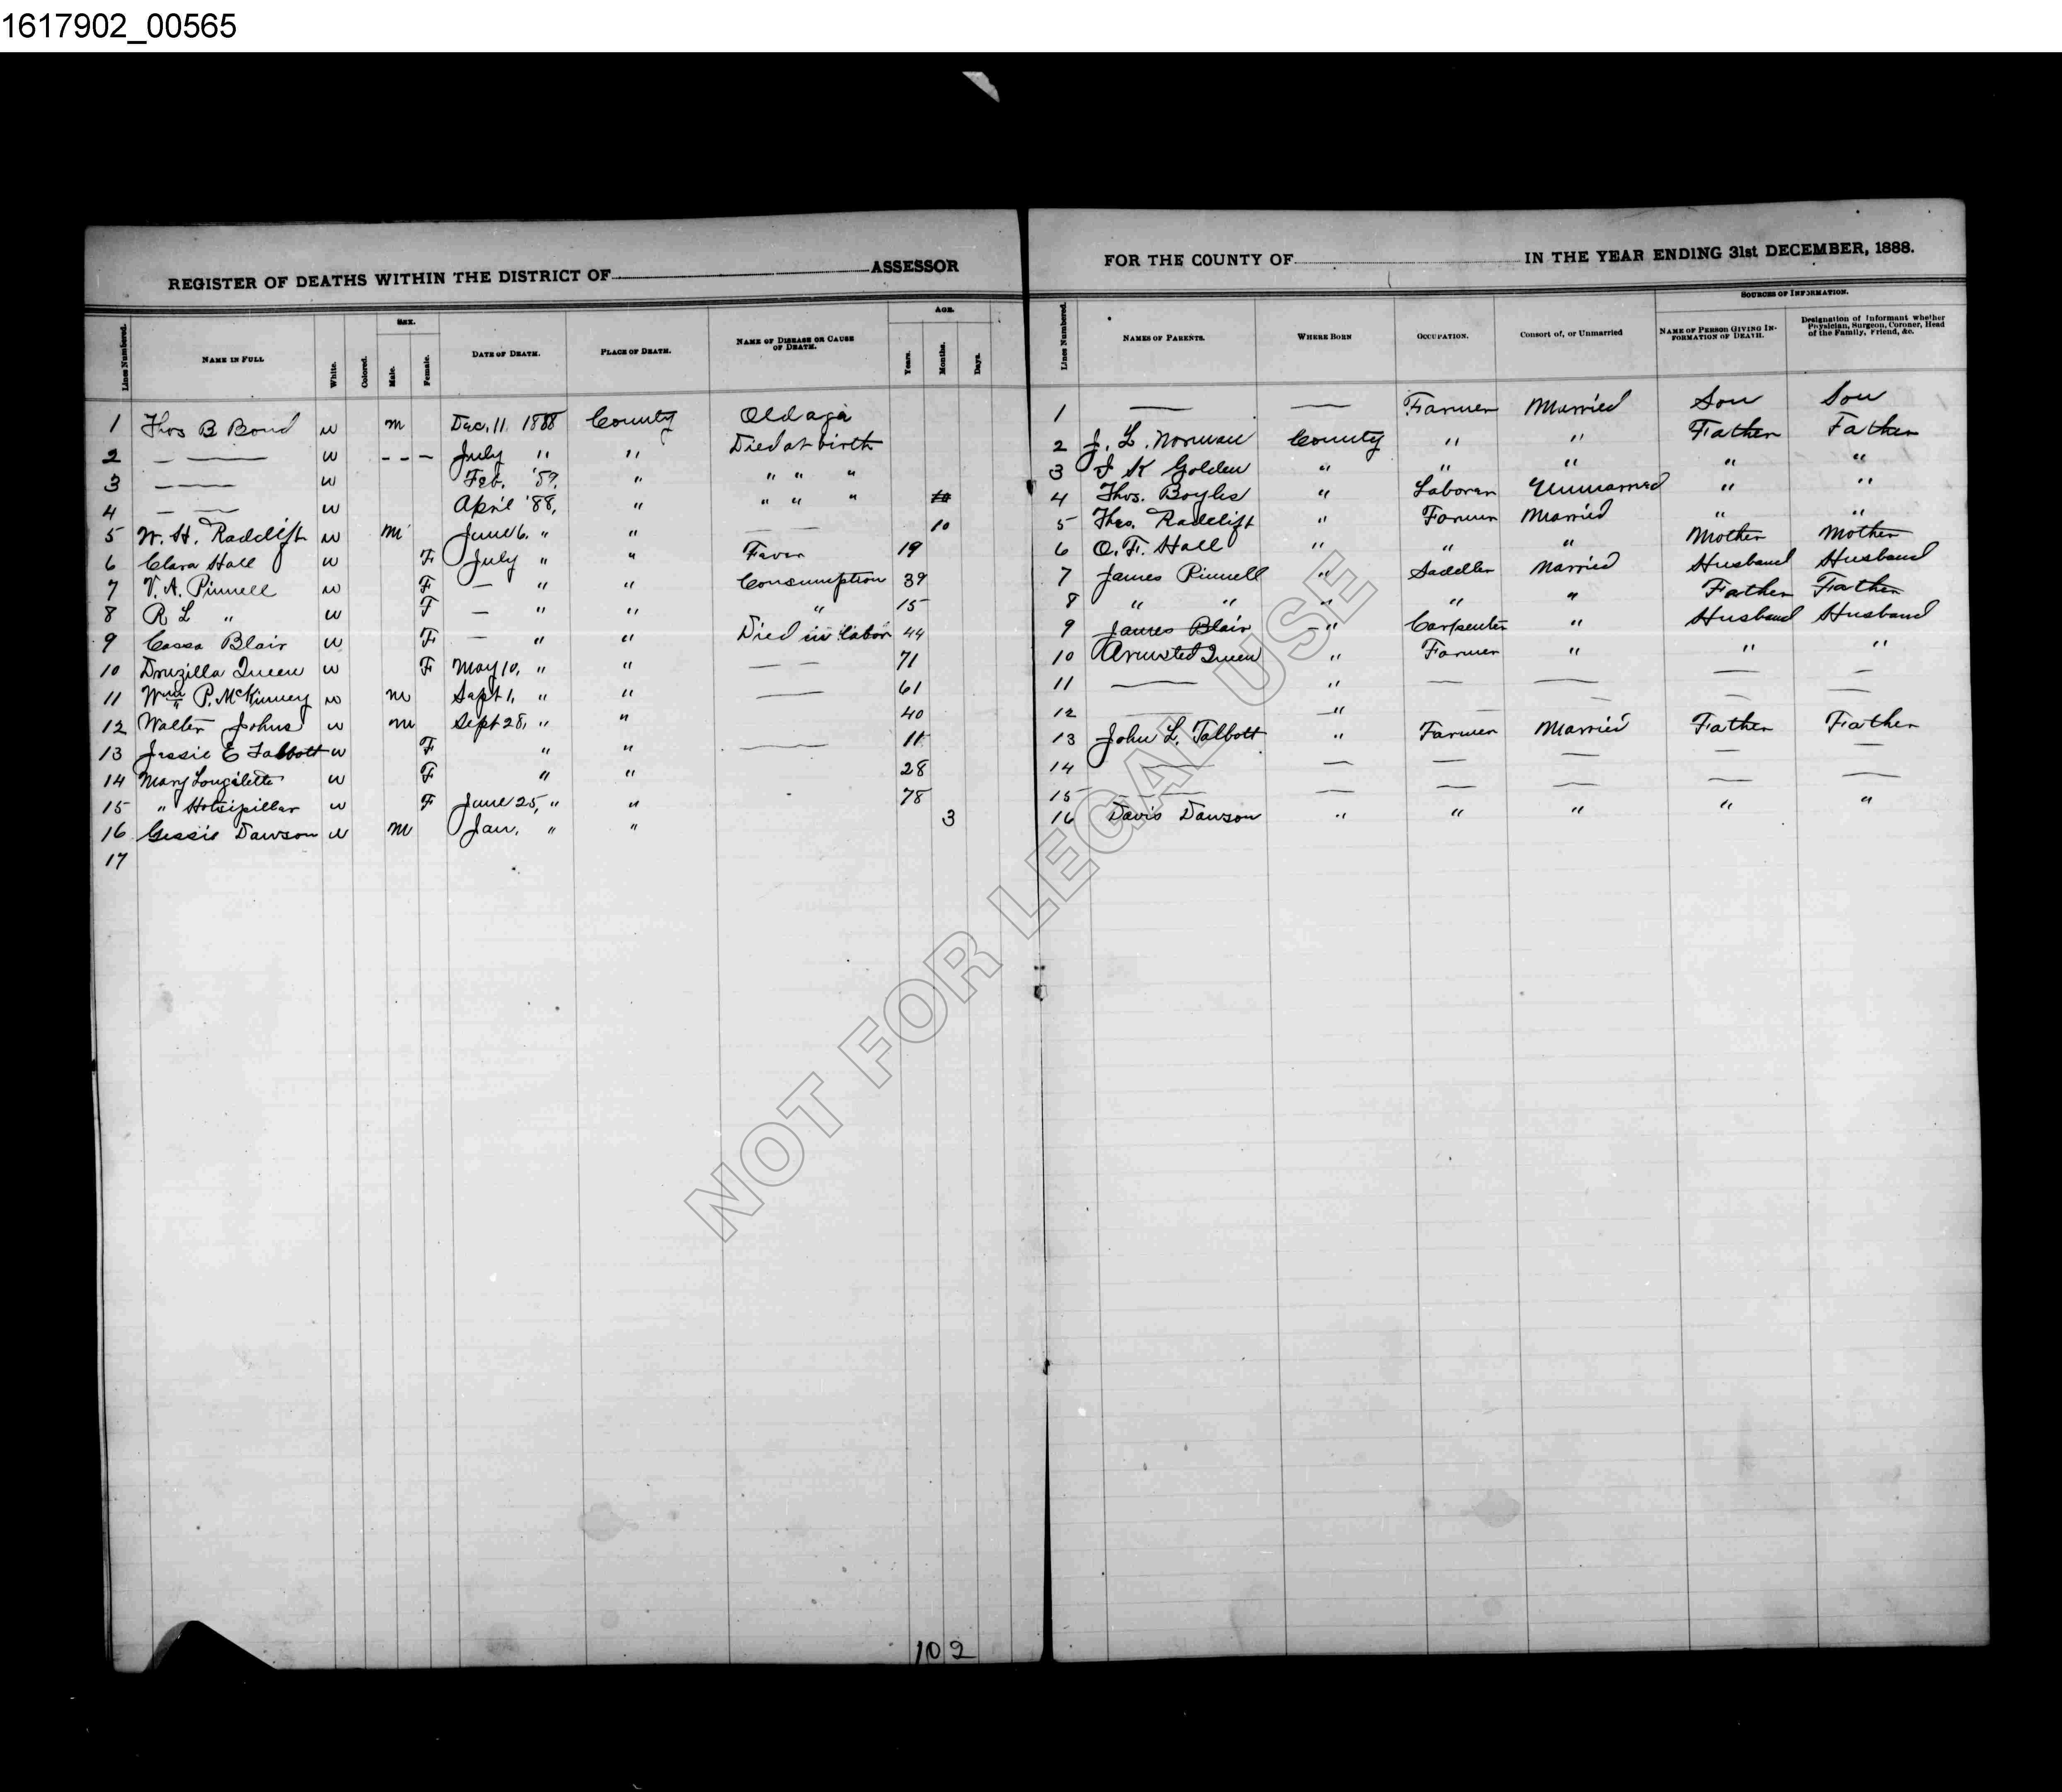 1617902_00565
REGISTER OF DEATHS WITHIN THE DISTRICT OF ASSESSOR
Lines Numbered. NAME IN FULL White. Colored. SEX. Male. Female. DATE OF DEATH. PLACE OF DEATH. NAME OF DISEASE OR CAUSE OF DEATH. AGE. Years. Months. Days.
1 Thos B Bond W M Dec. 11. 1888 County Old age
2 — —— W - - - July " " Died at birth
3 —— W Feb. '89. " " " "
4 — — W April '88. " " " "
5 W. H. Radclift W M June 6. " " — — 10
6 Clara Hall W F July " " Fever 19
7 V. A. Pinnell W F — " " Consumption 39
8 R L " W F — " " " 15
9 Cassa Blair W F — " " Died in labor 44
10 Druzilla Queen W F May 10, " " — — 71
11 Wm P. McKinney W M Sept 1, " " —— 61
12 Walter Johns W M Sept 28, " " 40
13 Jessie E Talbott W F " " —— 11
14 Mary W F " " 28
15 " W F June 25, " " 78
16 Gessie Dawson W M Jan. " " 3
17
102
FOR THE COUNTY OF IN THE YEAR ENDING 31st DECEMBER, 1888.
Lines Numbered. NAMES OF PARENTS. WHERE BORN OCCUPATION. Consort of, or Unmarried SOURCES OF INFORMATION. NAME OF PERSON GIVING INFORMATION OF DEATH. Designation of Informant whether Physician, Surgeon, Coroner, Head of the Family, Friend, &c.
1 —— —— Farmer Married Son Son
2 J. L. Norman County " " Father Father
3 J K Golden " " " " "
4 Thos. Boyles " Laborer Unmarried " "
5 Thos. Radclift " Farmer Married " "
6 O. F. Hall " " " Mother Mother
7 James Pinnell " Saddler Married Husband Husband
8 " " " " " Father Father
9 James Blair " Carpenter " Husband Husband
10 Armsted Queen " Farmer " " "
11 —— " — — — —
12 —— " — — — —
13 John L. Talbott " Farmer Married Father Father
14 —— — — — — —
15 —— — — — — —
16 Davis Dawson " " " " "
NOT FOR LEGAL USE